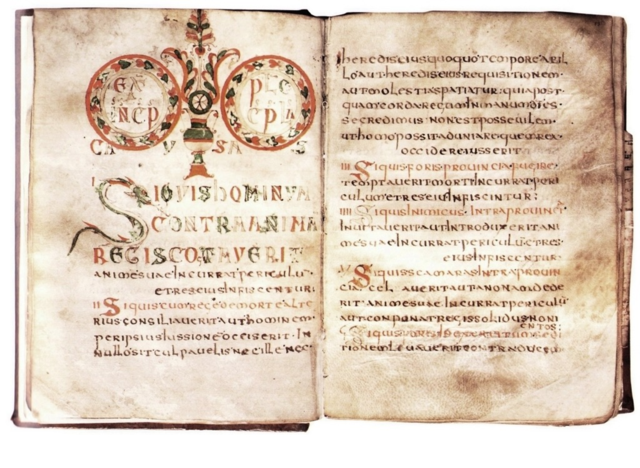 SI QUIS hOMINUM
CONTRA ANIMA
REGIS COGITAVERIT
animesuae Incurrat periculu
etreseius Infiscentur
II Siquis cum rege demorte alte
rius consiliaverit aut hominem
per ipsius Iussionem occiserit In
nullo sit culpavelis nec ille nec
heredis eius quoquo tempore
aut heredis eius requisitionem
aut molestias patiatur quia post
quam corda regum In manu dei es
se credimus non est possevelem
ut homo possit aduniare quem rex
occidere iusserit
III Siquis foris provincia fugire
temptaverit mort Incurrat peri
culum et res eius Infiscentur
IIII Siquis Inimicus Intra provincia
Invitaverit aut Introduxerit ani
mesuae Incurrat periculu et res
eius Infiscentur
V Siquis scamaras Intra provin
averit aut annona dede
rit animesuae Incurrat periculu
aut conponat regis solidus noni
entos
Siquis foris
tionem levaverit contra